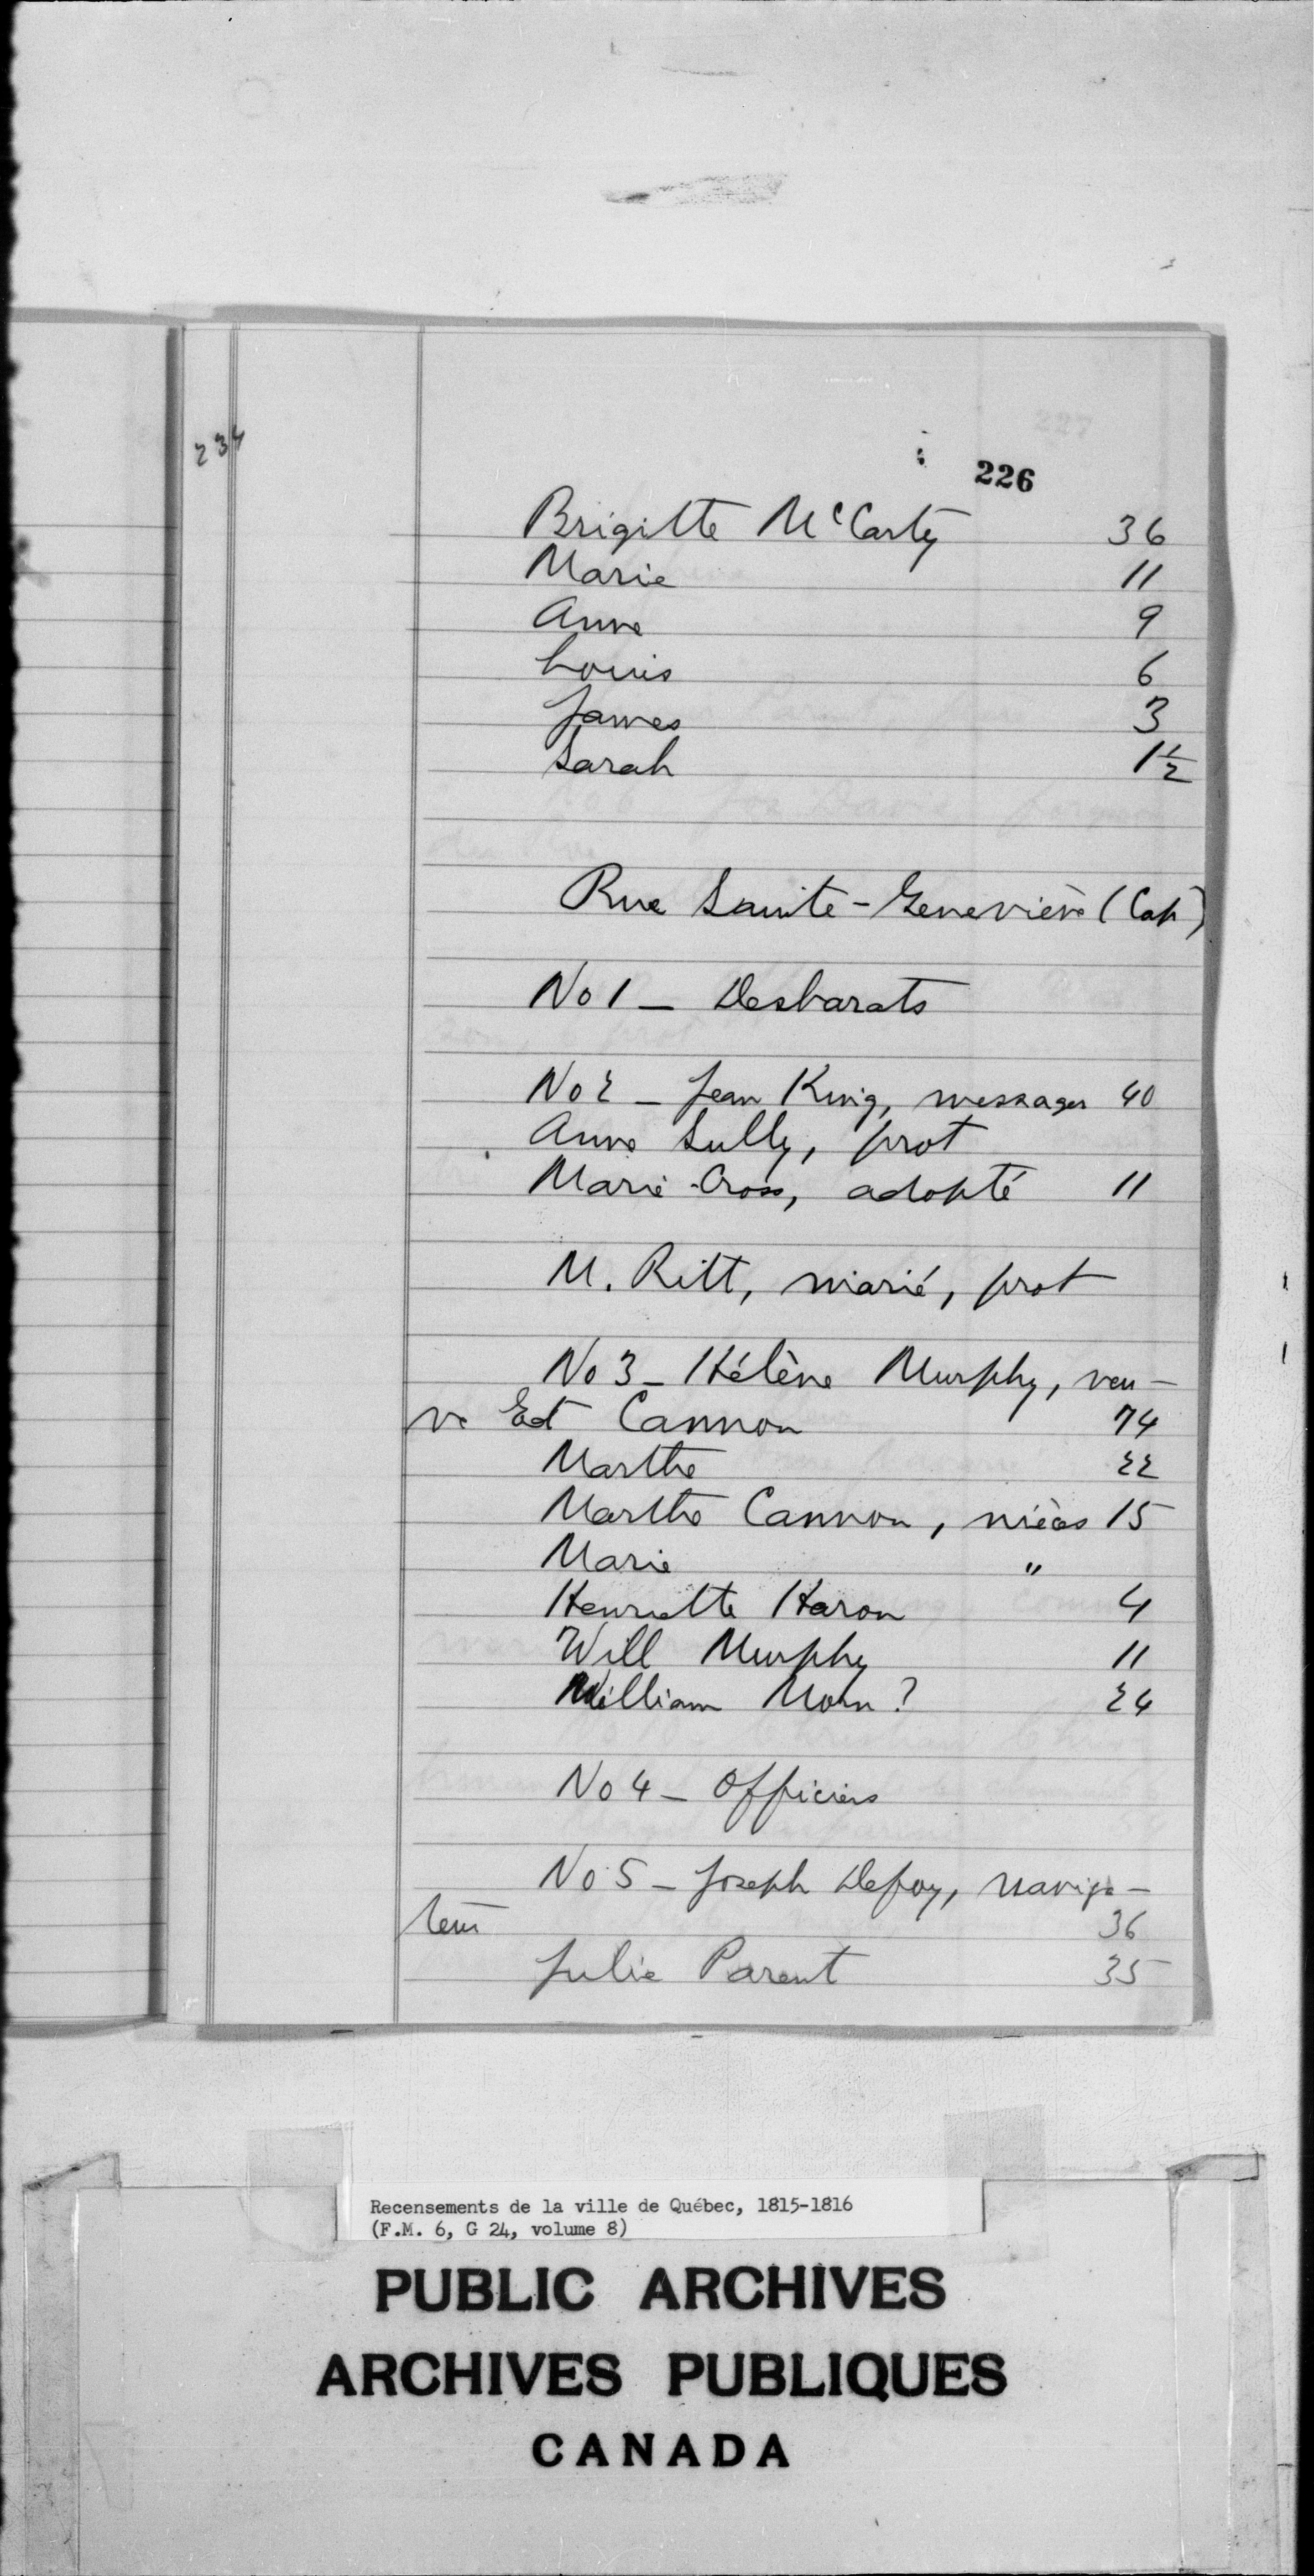 234
226
Brigitte McCarty 36
Marie 11
Anne 9
Louis 6
James 3
Sarah 1½
Rue Sainte-Geneviève (Cap)
No 1 — Desbarats
No 2 — Jean King, messager 40
Anne Sully, prot
Marie Cross, adopté 11
M. Ritt, marié, prot
No 3 — Hélène Murphy, veu-
ve Ed Cannon 74
Marthe 22
Marthe Cannon, nièces 15
Marie "
Henriette Haron 4
Will Murphy 11
William ? 24
No 4 — Officiers
No 5 — Joseph Defoy, naviga-
teur 36
Julie Parent 35
Recensements de la ville de Québec, 1815-1816
(F.M. 6, G 24, volume 8)
PUBLIC ARCHIVES
ARCHIVES PUBLIQUES
CANADA